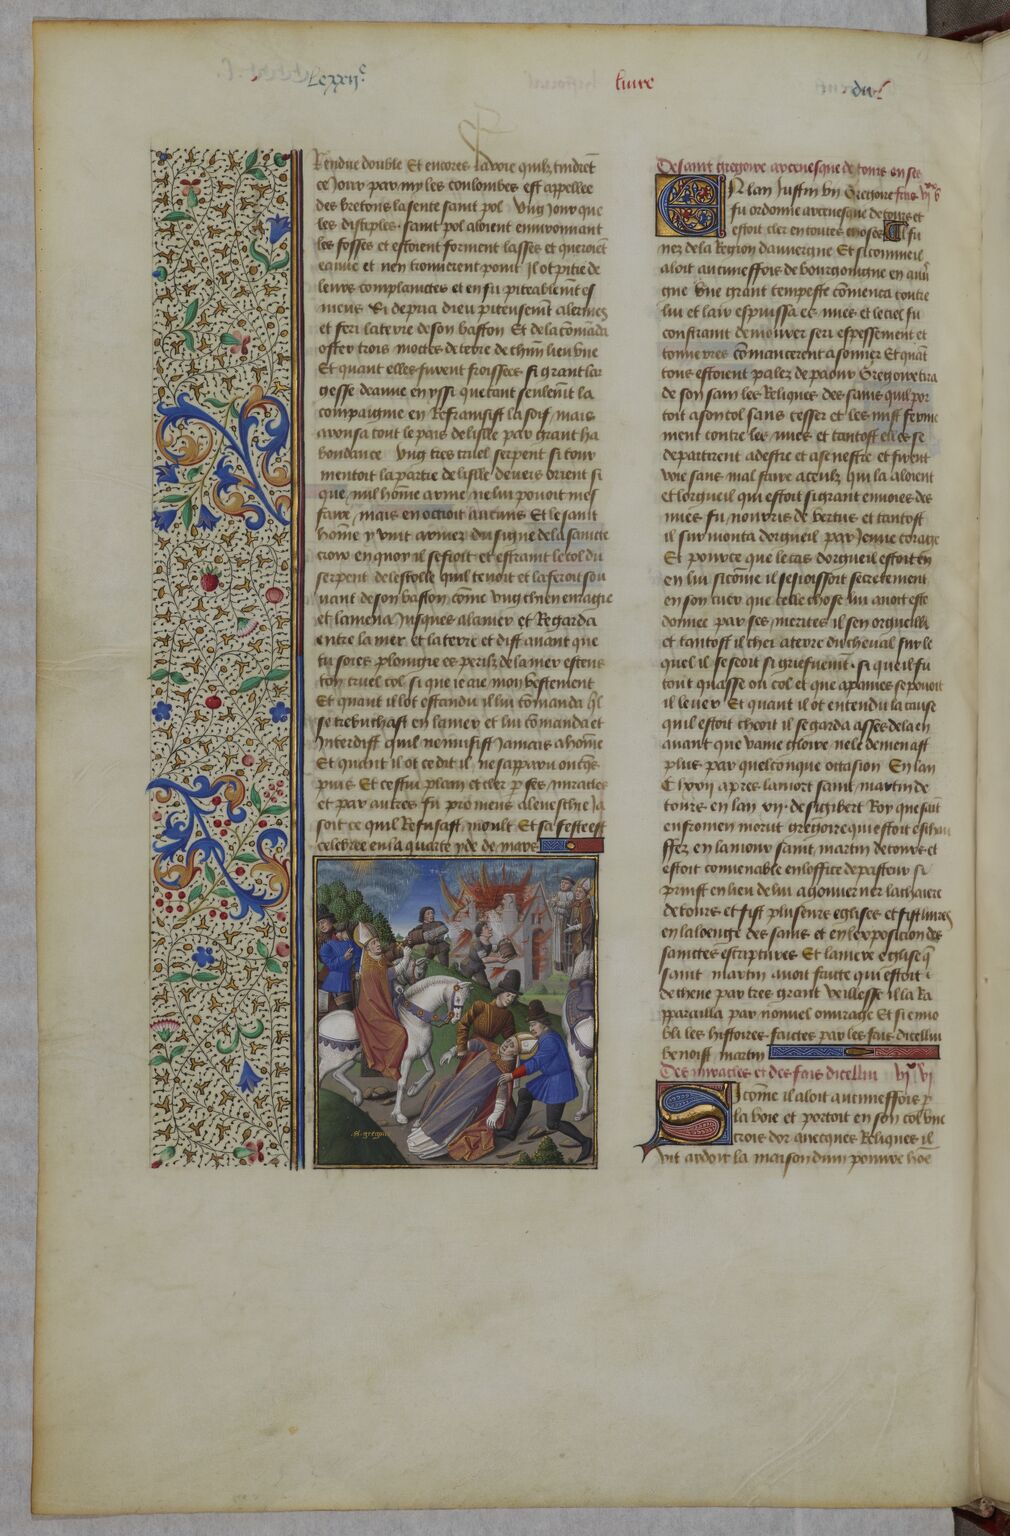 Le xxij.e
livre
du
Rendue double Et encores la voie quilz tindrēt
ce Jour par my les coulombes est appellee
des bretons la sente saint pol Ung Jour que
les disciples saint pol aloient environnant
les fosses et estoient forment lasses et queroiēt
eaue et nen trouverent point Il ot pitie de
leurs complainctes et en fu piteablemēt es
meus Si depria dieu piteusemēt a lermes
et feri la terre de son baston Et de la cōmāda
oster trois mottes de terre de chūn lieu une
Et quant elles furent froissees si grant lar
gesse deaue en yssi que tant seulemēt la
compaignie en Refransist la soif mais
arousa tout le pais de lisle par grant ha
bondance Ung tres cruel serpent si tour
mentoit la partie de lisle devers orient si
que mil hōme arme ne lui povoit mes
faire mais en occioit aucuns Et le saint
hōme y vint armer du signe de la saincte
croix en quoy il se fioit et estraint le col du
serpent de lestolle quil tenoit et la feroit sou
vant de son baston cōme ung chien enragie
et lamena Jusques a la mer et Regarda
entre la mer et la terre et dist avant que
tu soies plongie es perilz de la mer estens
ton cruel col si que ie aie mon vestement
Et quant il lot estandu il lui cōmanda q̄l
se trebuchast en la mer et lui cōmanda et
Interdist quil ne nuisist Jamais a hōme
Et quant il ot ce dit il ne sapparu oncq̄s
puis Et cestui plain et cler p ses miracles
et par autres fu promeus a leveschie Ja
soit ce quil Refusast moult Et sa feste est
celebree en la quarte yde de mars
.S. gregoire
De saint gregoire arcevesque de tours en ses
fais v
En lan Justin vn Gregoire
fu ordonne arcevesque de tours et
estoit cler en toutes choses Il fu
nez de la Region dauvergne Et si comme il
aloit aucuneffois de bourgoingne en auu
gne Une grant tempeste cōmenca contre
lui et lair espuissa es nues et le ciel fu
de mouver feri espessement et
tonnerres cōmancerent a sonner Et quāt
tous estoient palez de paour Gregoire tira
de son sain les Reliques des sains quil por
toit a son col sans cesser et les mist ferme
ment contre les nues et tantost elles se
departirent a destre et a senestre et firent
voie sans mal faire a ceulx qui la aloient
et lorgueil qui estoit si grant envoies des
nues fu nourris de vertus et tantost
il surmonta dorgueil par Jenne corage
Et pource que le cas dorgueil estoit en
en lui si cōme il sesioissoit secretement
en son cuer que celle chose lui avoit este
donnee par ses merites il sen orguilli
et tantost il chei a terre du cheval sur le
quel il se seoit si griefment si que il fu
tout quasse ou col et que a paines se povoit
il lever Et quant il ot entendu la cause
quil estoit cheoit il se garda assez de la en
avant que vaine gloire ne le demenast
plus par quelconque occasion En lan
C lxvij apres la mort saint martin de
tours en lan vij. de sigibert Roy que saīt
eufronien morut gregoire qui estoit eschau
ffez en lamour saint martin de tours et
estoit convenable en loffice de pasteur si
prinst en lieu de lui a gouverner la chaiere
de tours et fist plusieurs eglises et fist livres
en la loenge des sains et en lexposicion des
sainctes escriptures Et la mere eglise q̄
saint martin avoit faicte qui estoit
decheue par tres grant veillesse il la Ra
pparailla par nouvel ouvrage Et si enno
bli les histoires faictes par les fais dicellui
benoist martin
Des miracles et des fais dicellui vj.xx vj
Si cōme il aloit aucuneffois p
la voie et portoit en son col une
crois dor avecques Reliques il
vit ardoir la maison dun povre hōe